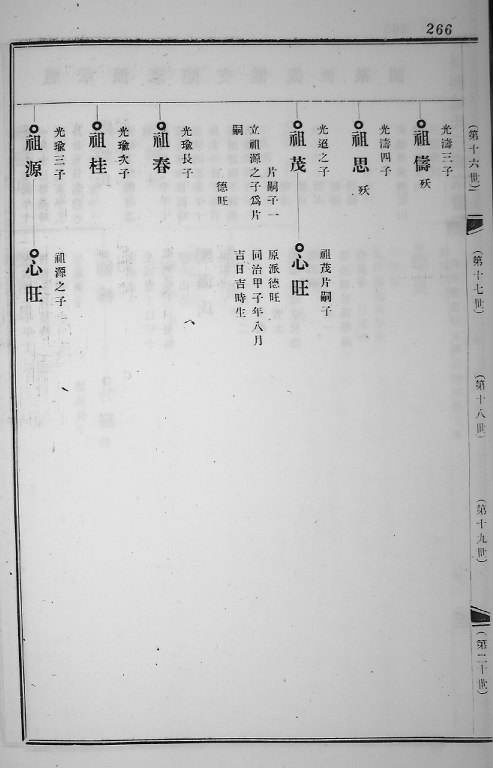 266
(第十六世)
(第十七世)
(第十八世)
(第十九世)
(第二十世)
光濤三子
祖儔 殀
光濤四子
祖思 殀
光道之子
祖茂
片嗣子一
德旺
立祖源之子為片
嗣
祖茂片嗣子
心旺
原派德旺
同治甲子年八月
吉日吉時生
光瑜長子
祖春
光瑜次子
祖桂
光瑜三子
祖源
祖源之子
心旺